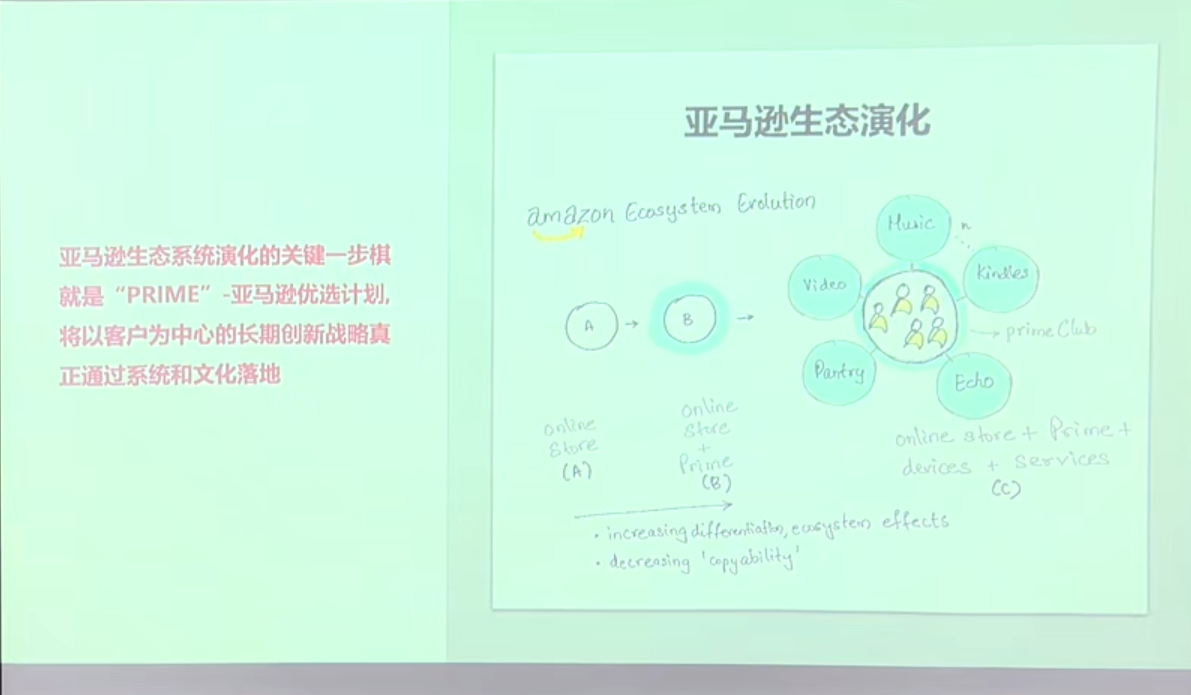 亚马逊生态系统演化的关键一步棋
就是“PRIME”-亚马逊优选计划,
将以客户为中心的长期创新战略真
正通过系统和文化落地
亚马逊生态演化
amazon Ecosystem Evolution
Music
n
Kindles
Video
A
B
prime Club
Pantry
Echo
online
Store
(A)
online
Store
+
Prime
(B)
online store + Prime +
devices + services
(C)
• increasing differentiation, ecosystem effects
• decreasing 'copyability'